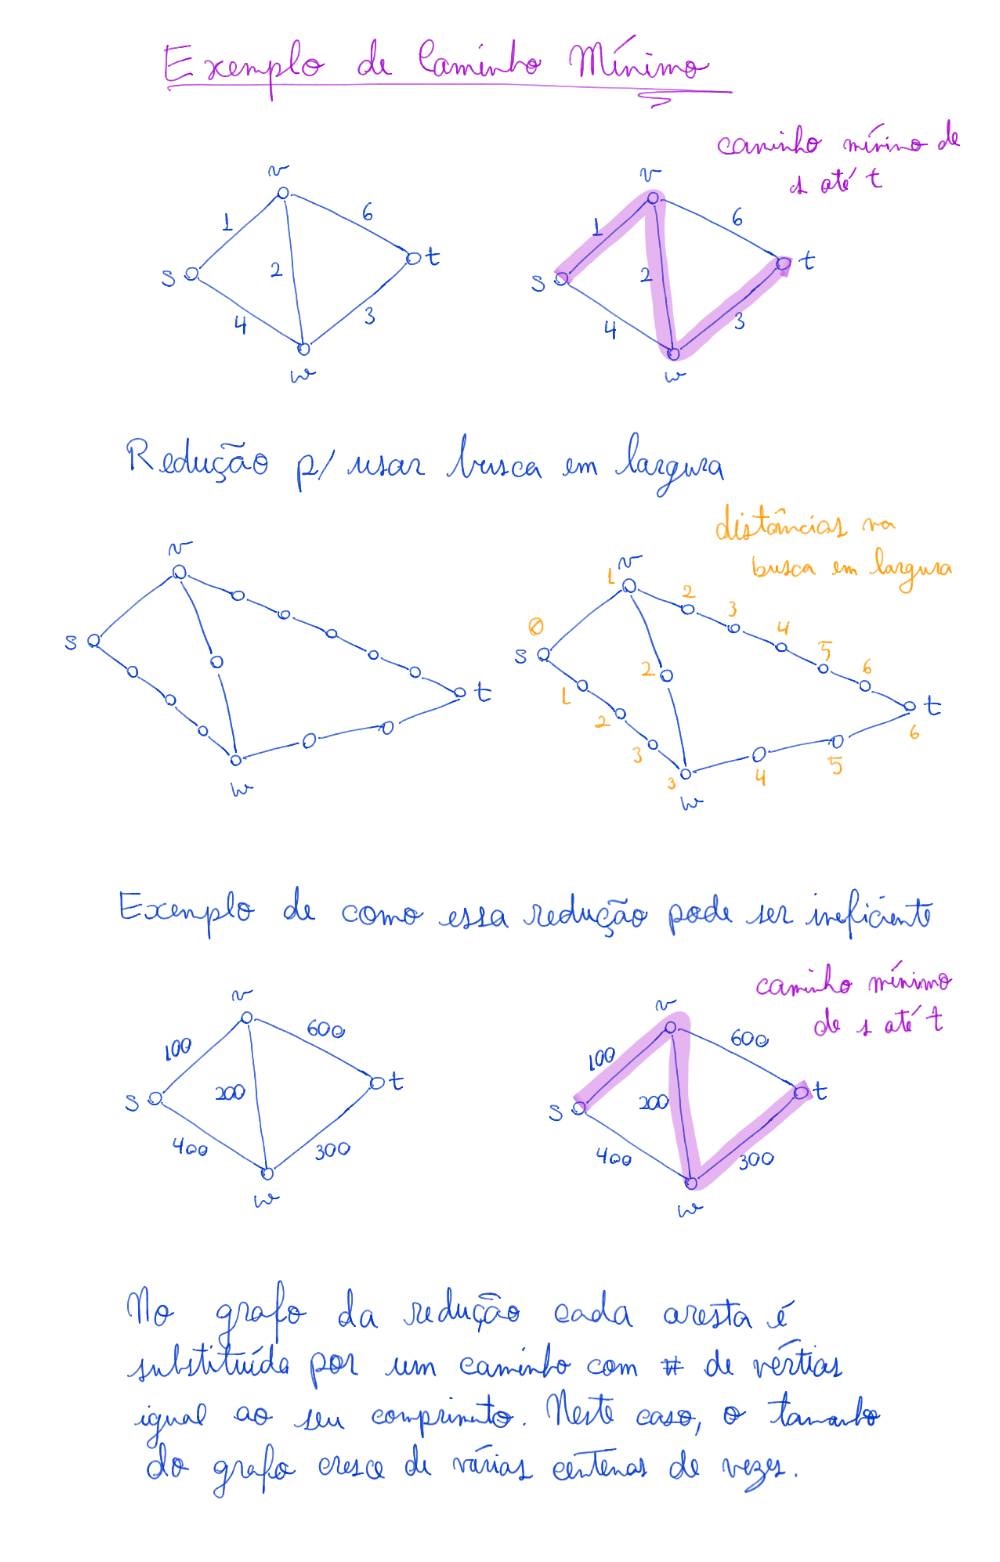 Exemplo de Caminho Mínimo
caminho mínimo de
s até t
v
1
6
s
2
t
4
3
w
v
1
6
s
2
t
4
3
w
Redução p/ usar busca em largura
distâncias na
busca em largura
v
s
t
w
v
1
2
3
4
5
6
0
s
2
t
6
1
2
3
3
4
5
w
Exemplo de como essa redução pode ser ineficiente
caminho mínimo
de s até t
v
100
600
s
200
t
400
300
w
v
100
600
s
200
t
400
300
w
No grafo da redução cada aresta é
substituída por um caminho com # de vértias
igual ao seu comprimento. Neste caso, o tamanho
do grafo cresce de várias centenas de vezes.